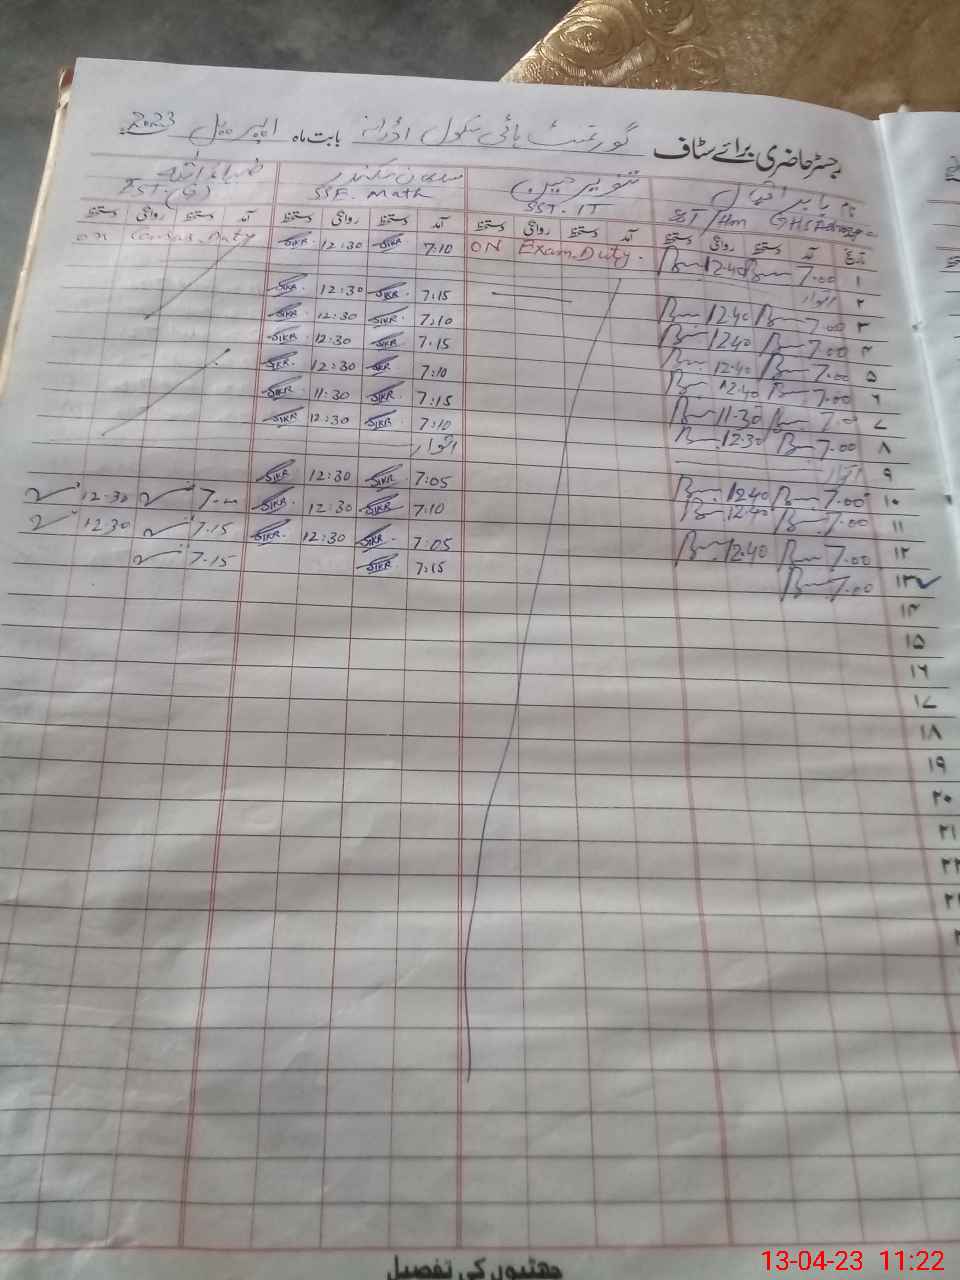 رجسٹر حاضری برائے سٹاف گورنمنٹ ہائی سکول بابت ماہ اپریل 2023
نام بابر اقبال تنویر حسین سلمان سکندر ضیاء اللہ
SST/Hm SST-IT SSE. Math EST-(G)
تاریخ آمد دستخط روانگی دستخط آمد دستخط روانگی دستخط آمد دستخط روانگی دستخط آمد دستخط روانگی دستخط
۱ 7.00 12.40 ON Exam. Duty. 7:10 SIKR 12:30 SIKR on Census Duty
۲ اتوار
۳ 7.00 12.40 7:15 SIKR 12:30 SIKR
۴ 7.00 12.40 7:10 SIKR 12:30 SIKR
۵ 7.00 12.40 7:15 SIKR 12:30 SIKR
۶ 7.00 12.40 7:10 SIKR 12:30 SIKR
۷ 7.00 11.30 7:15 SIKR 11:30 SIKR
۸ 7.00 12.30 7:10 SIKR 12:30 SIKR
۹ اتوار اتوار
۱۰ 7.00 12.40 7:05 SIKR 12:30 SIKR
۱۱ 7.00 12.40 7:10 SIKR 12:30 SIKR 7.00 12:30
۱۲ 7.00 12.40 7:05 SIKR 12:30 SIKR 7.15 12:30
۱۳ 7.00 7:15 SIKR 7.15
۱۴
۱۵
۱۶
۱۷
۱۸
۱۹
۲۰
۲۱
۲۲
چھٹیوں کی تفصیل
13-04-23 11:22